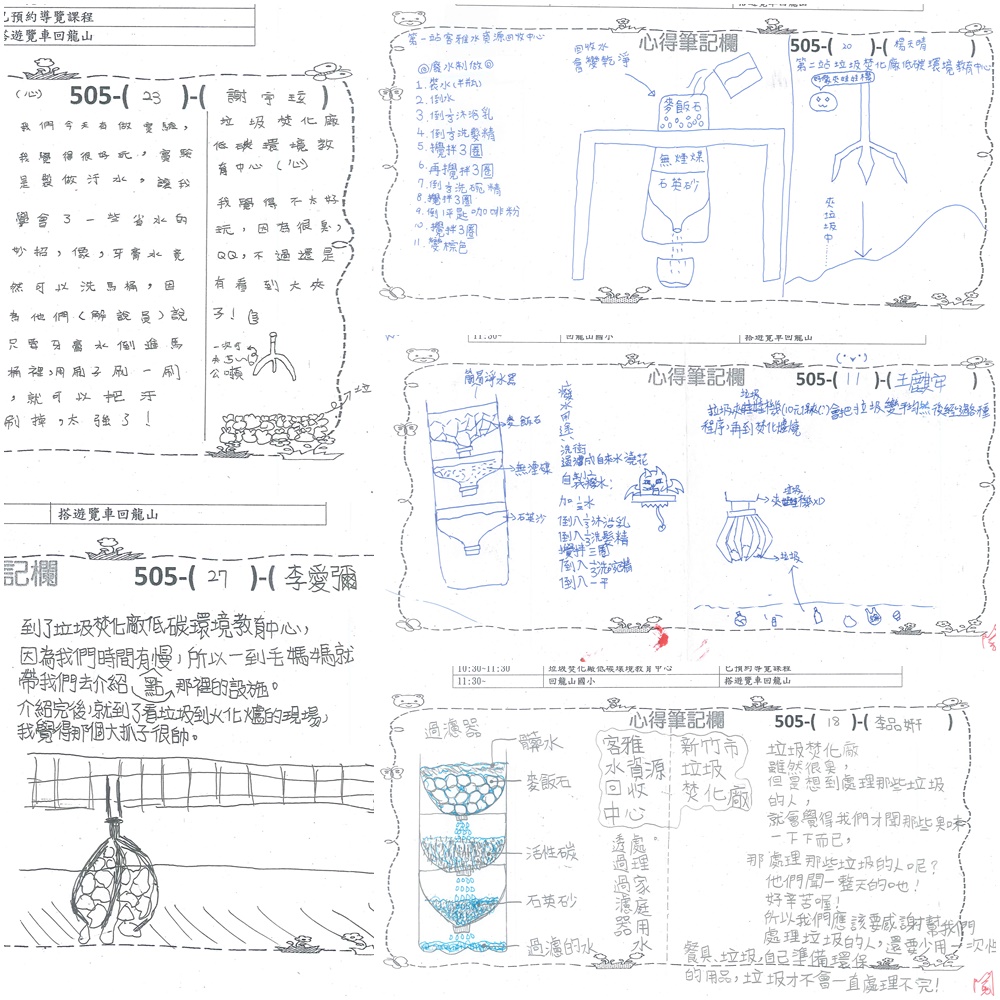 已預約導覽課程
搭遊覽車回龍山
(心) 505-( 23 )-( 謝 )
我們今天有做實驗,
我覺得很好玩,實驗
是製做汙水。讓我
學會了一些省水的
妙招,像,牙膏水竟
然可以洗馬桶,因
為他們(解說員)說
只要牙膏水倒進馬
桶裡,用刷子刷一刷
,就可以把牙
刷掉,太強了!
垃圾焚化廠
低碳環境教
育中心(心)
我覺得不太好
玩,因為很臭,
QQ,不過還是
有看到大夾
子!
一次可
夾5~
公噸
垃
第一站客雅水資源回收中心
心得筆記欄
505-( 20 )-( 楊天晴 )
第二站垃圾焚化廠低碳環境教育中心
◎廢水制做◎
1. 裝水(半瓶)
2. 倒水
3. 倒⅓沐浴乳
4. 倒⅓洗髮精
5. 攪拌3圈
6. 再攪拌3圈
7. 倒⅓洗碗精
8. 攪拌3圈
9. 倒1平匙咖啡粉
10. 攪拌3圈
11. 變棕色
回收水
會變乾淨
麥飯石
無煙煤
石英砂
夾垃圾中
11:30~ 回龍山國小 搭遊覽車回龍山
心得筆記欄
505-( 11 )-( 王麒安 )
簡易淨水器
麥飯石
無煙煤
石英沙
廢水用途:
洗街
過濾成自來水澆花
自製廢水:
加½水
倒入⅓沐浴乳
倒入⅓洗髮精
攪拌三圈
倒入⅓洗碗精
倒入一平
垃圾
程序,再到焚化爐燒
垃圾
夾娃娃機x1
垃圾
搭遊覽車回龍山
記欄
505-( 27 )-( 李愛彌
到了垃圾焚化廠低碳環境教育中心,
因為我們時間有慢點,所以一到毛媽媽就
帶我們去介紹那裡的設施。
介紹完後,就到了看垃圾到火化爐的現場,
我覺得那個大抓子很帥。
10:30-11:30 垃圾焚化廠低碳環境教育中心 已預約導覽課程
11:30~ 回龍山國小 搭遊覽車回龍山
心得筆記欄
505-( 18 )-( 李品妍 )
過濾器
髒水
麥飯石
活性碳
石英砂
過濾的水
客雅
水資源
回收
中心
新竹市
垃圾
焚化廠
透過過濾器
處理家庭用水。
垃圾焚化廠
雖然很臭,
但是想到處理那些垃圾
的人,
就會覺得我們才聞那些臭味
一下下而已,
那處理那些垃圾的人呢?
他們聞一整天的吔!
好辛苦喔!
所以我們應該要感謝幫我們
處理垃圾的人,還要少用一次性
餐具、垃圾,自己準備環保
的用品,垃圾才不會一直處理不完!